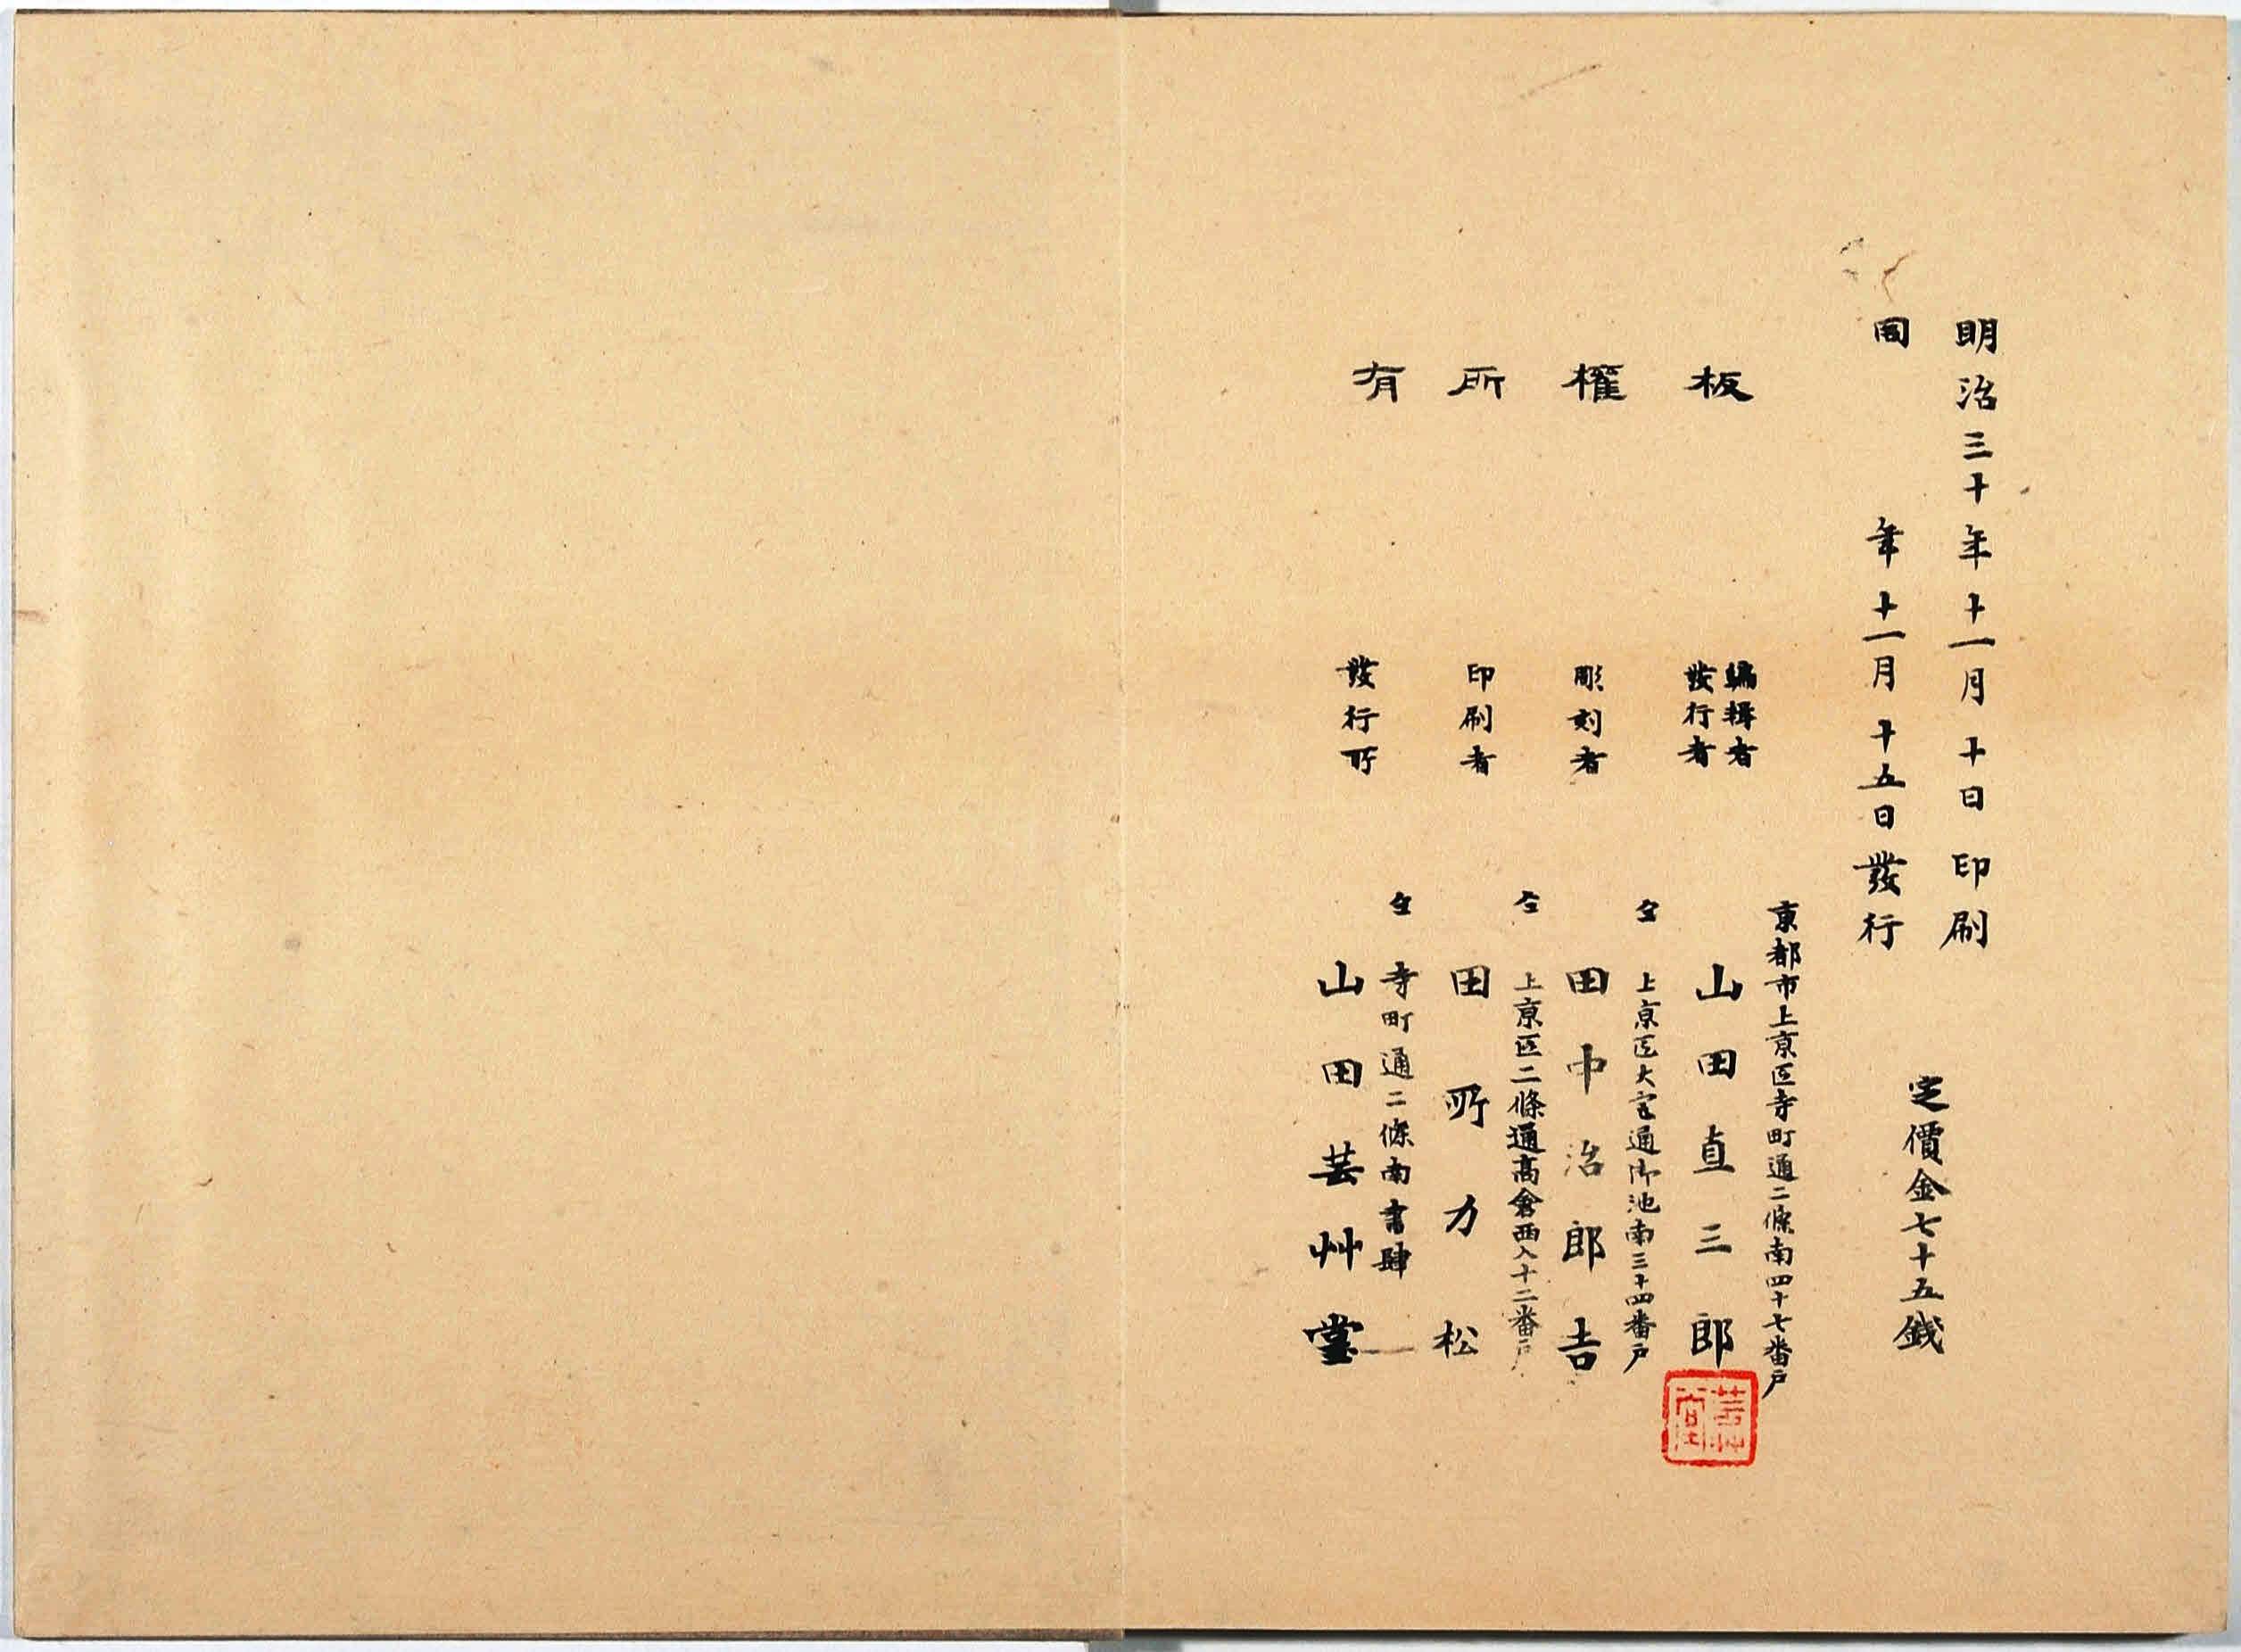 明治三十年十一月十日印刷
同　　年十一月十五日發行
定價金七十五銭
板權所有
編輯者
發行者
京都市上京区寺町通二條南四十七番戸
山田直三郎
芸艸堂
彫刻者
仝　上京区大宮通御池南三十四番戸
田中治郎吉
印刷者
仝　上京区二條通高倉西入十二番戸
田所力松
發行所
仝　寺町通二條南書肆
山田芸艸堂